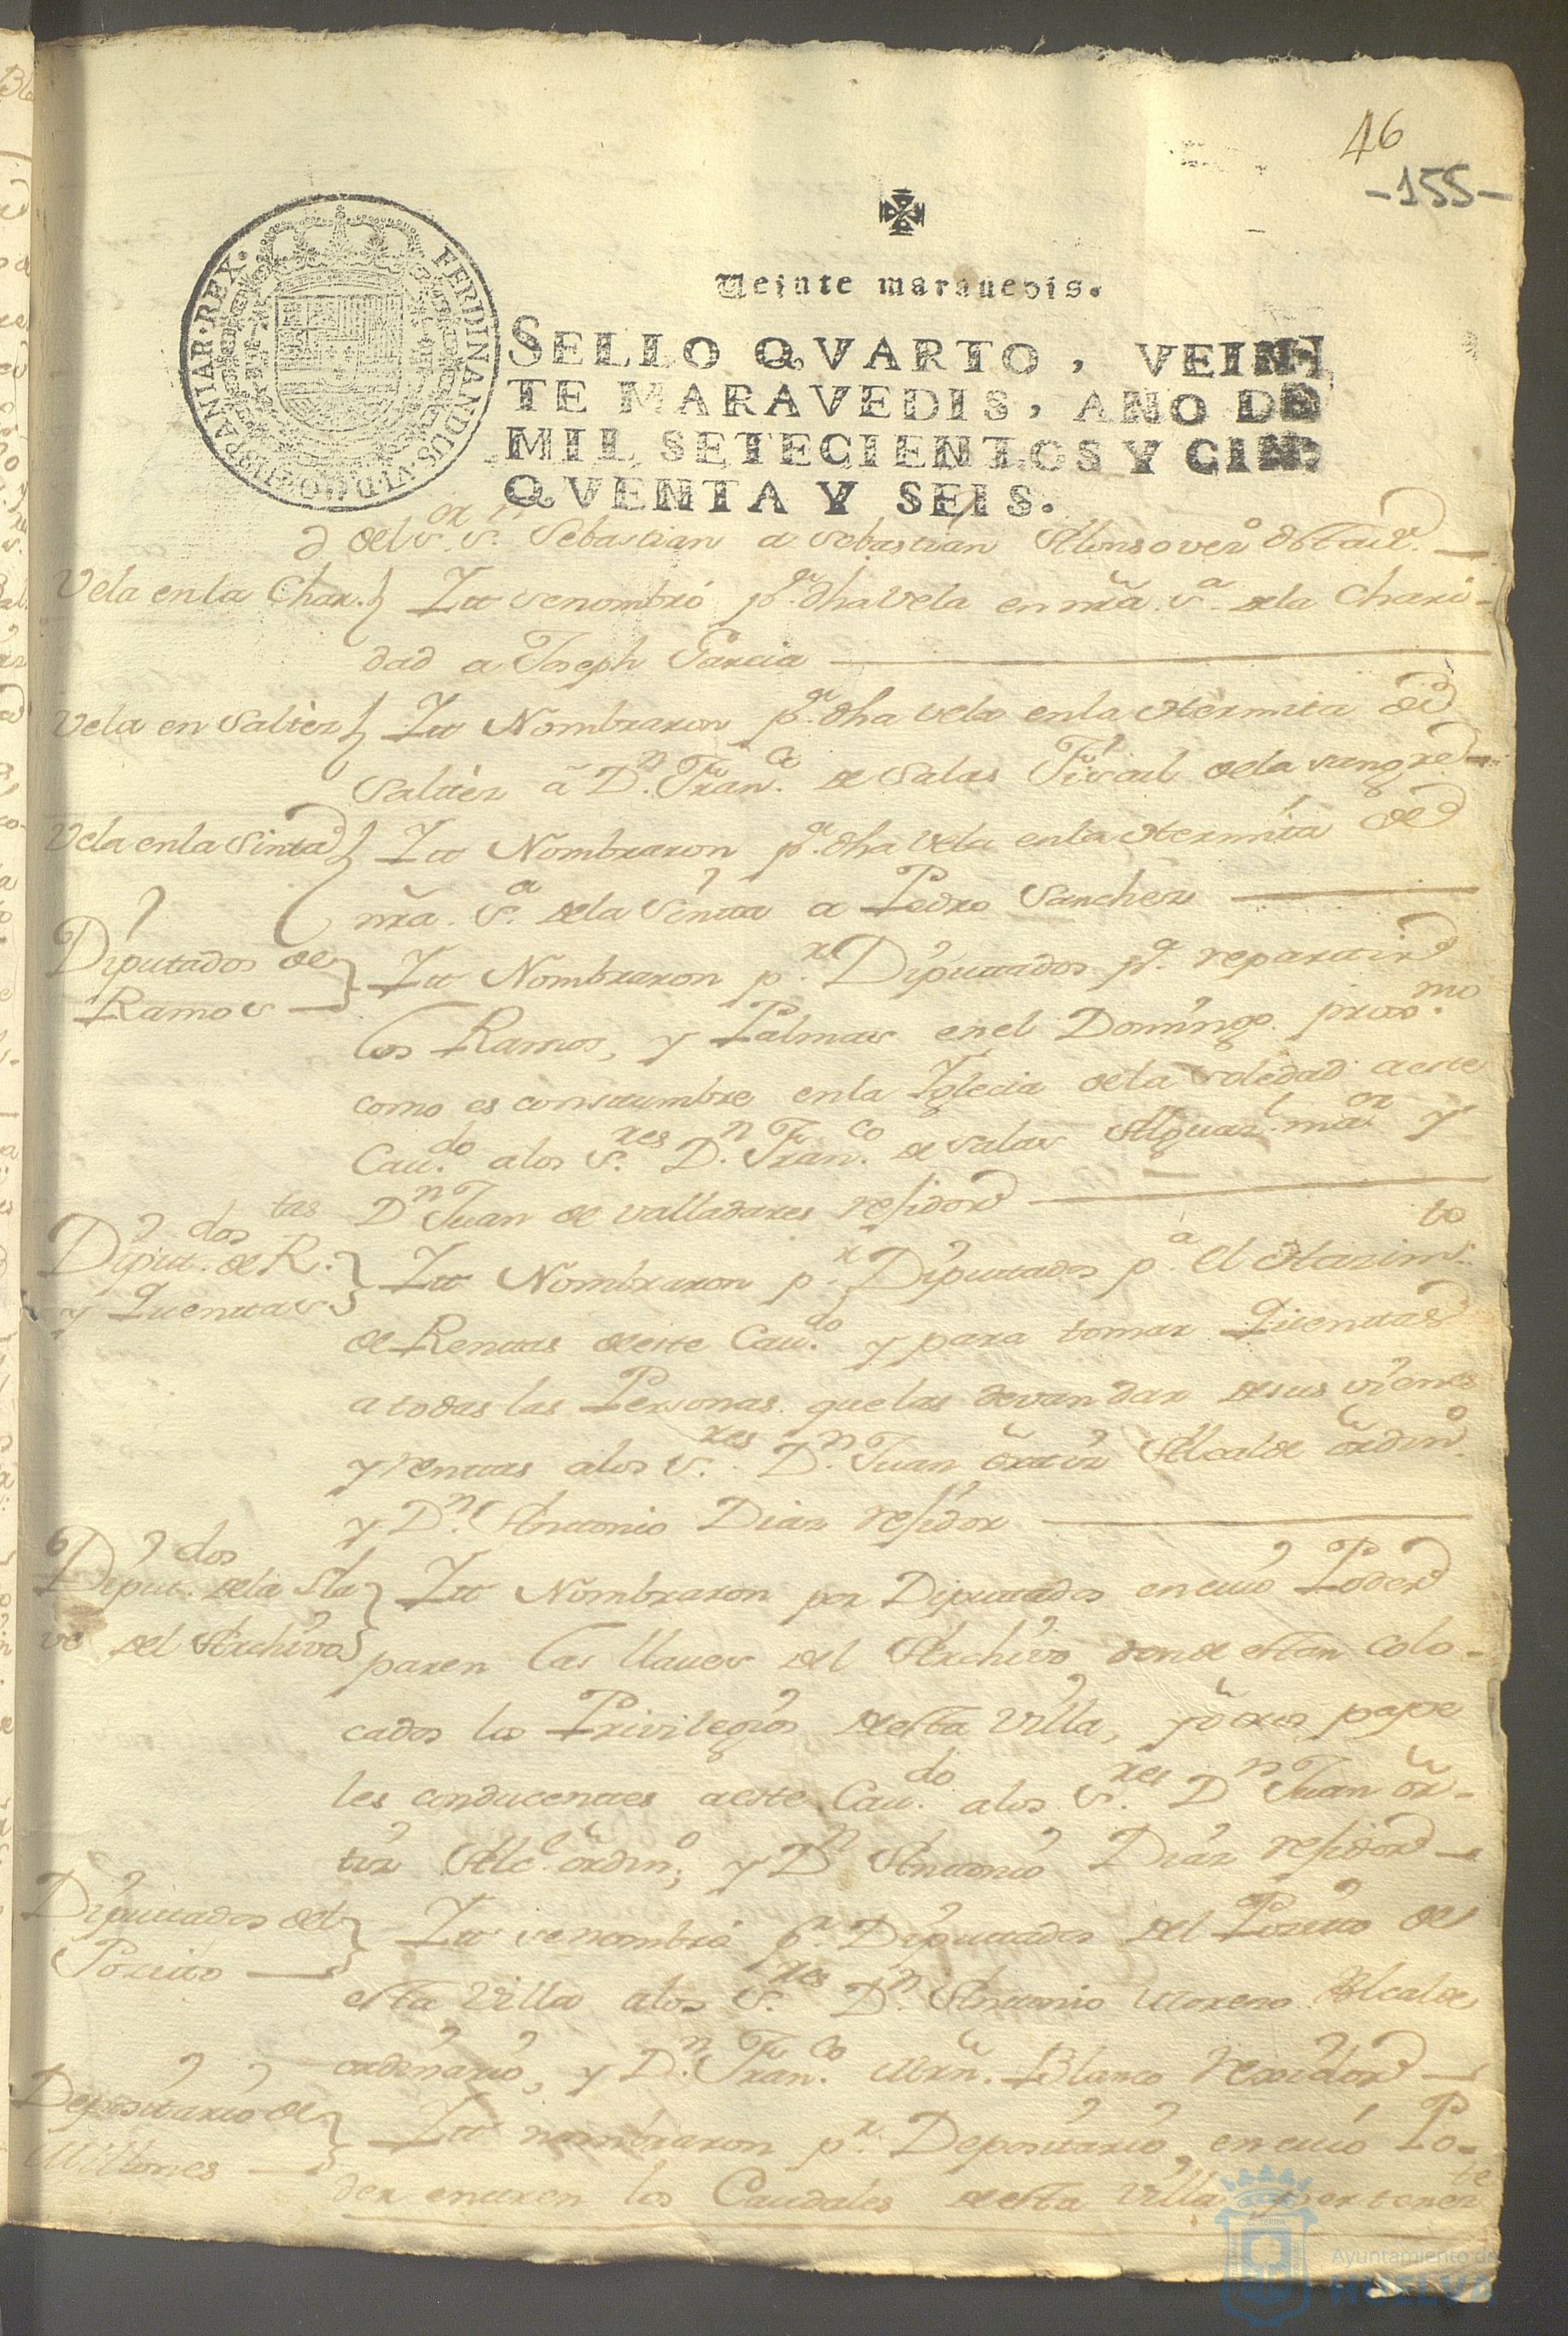 46
-155-
Veinte maravedis.
SELLO QVARTO, VEIN
TE MARAVEDIS, AÑO DE
MIL SETECIENTOS Y CIN
QVENTA Y SEIS.
FERDINANDUS·VI·D·G·HISPANIAR·REX·
del s.or s.n Sebastian a Sebastian Alonso
Vela en la Char.d Itt se nombró p.a dha Vela en nrã s.a de la Chari-
dad a Joseph Garcia
Vela en Saltèz Itt Nombraron p.a dha vela en la Hermita de
Saltèz â D.n Fran.co de Salas Fiscal de la sangre
Vela en la Sinta Itt Nombraron p.a dha Vela en la Hermita de
nrã. s.a de la Sinta a Pedro Sanchez
Diputados de Ramos Itt Nombraron p.r Diputados p.a reparatir
los Ramos, y Palmas en el Domingo proxs.mo
como es constumbre en la Iglecia de la Soledad a este
Cau.do a los s.res D.n Fran.co de Salas Alguaz.l ma.or y
D.n Juan de Valladares residor
Diput.dos de R.tas
y Quentas Itt Nombraron p.r Diputados p.a el Hazim.to
de Rentas de este Cau.do y para tomar Quentas
a todas las Personas que las devan dar de sus vienes
y rentas a los s.res D.n Juan õrtiz Alcalde õrdin.o
y D.n Antonio Diaz residor
Diput.dos de la Lla
ve del Archivo Itt Nombraron por Diputados en cuio Poder
paren las llaves del Archivo donde estan colo-
cados los Privilegios de esta Villa, y õtros pape
les conducentes a este Cau.do a los s.res D.n Juan õr-
tiz Alc.l õrdin.o, y D.n Antonio Diaz residor
Diputados del
Pocito Itt se nombró p.r Diputados del Pocito de
esta Villa a los s.res D.n Antonio Moreno Alcalde
ordenario, y D.n Fran.co Mrñ. Blanco rexidor
Depositario de
Millones Itt nombraron p.r Depositario en cuio Po-
der entren los Caudales de esta Villa pertenez.te
Ayuntamiento de
HUELVA